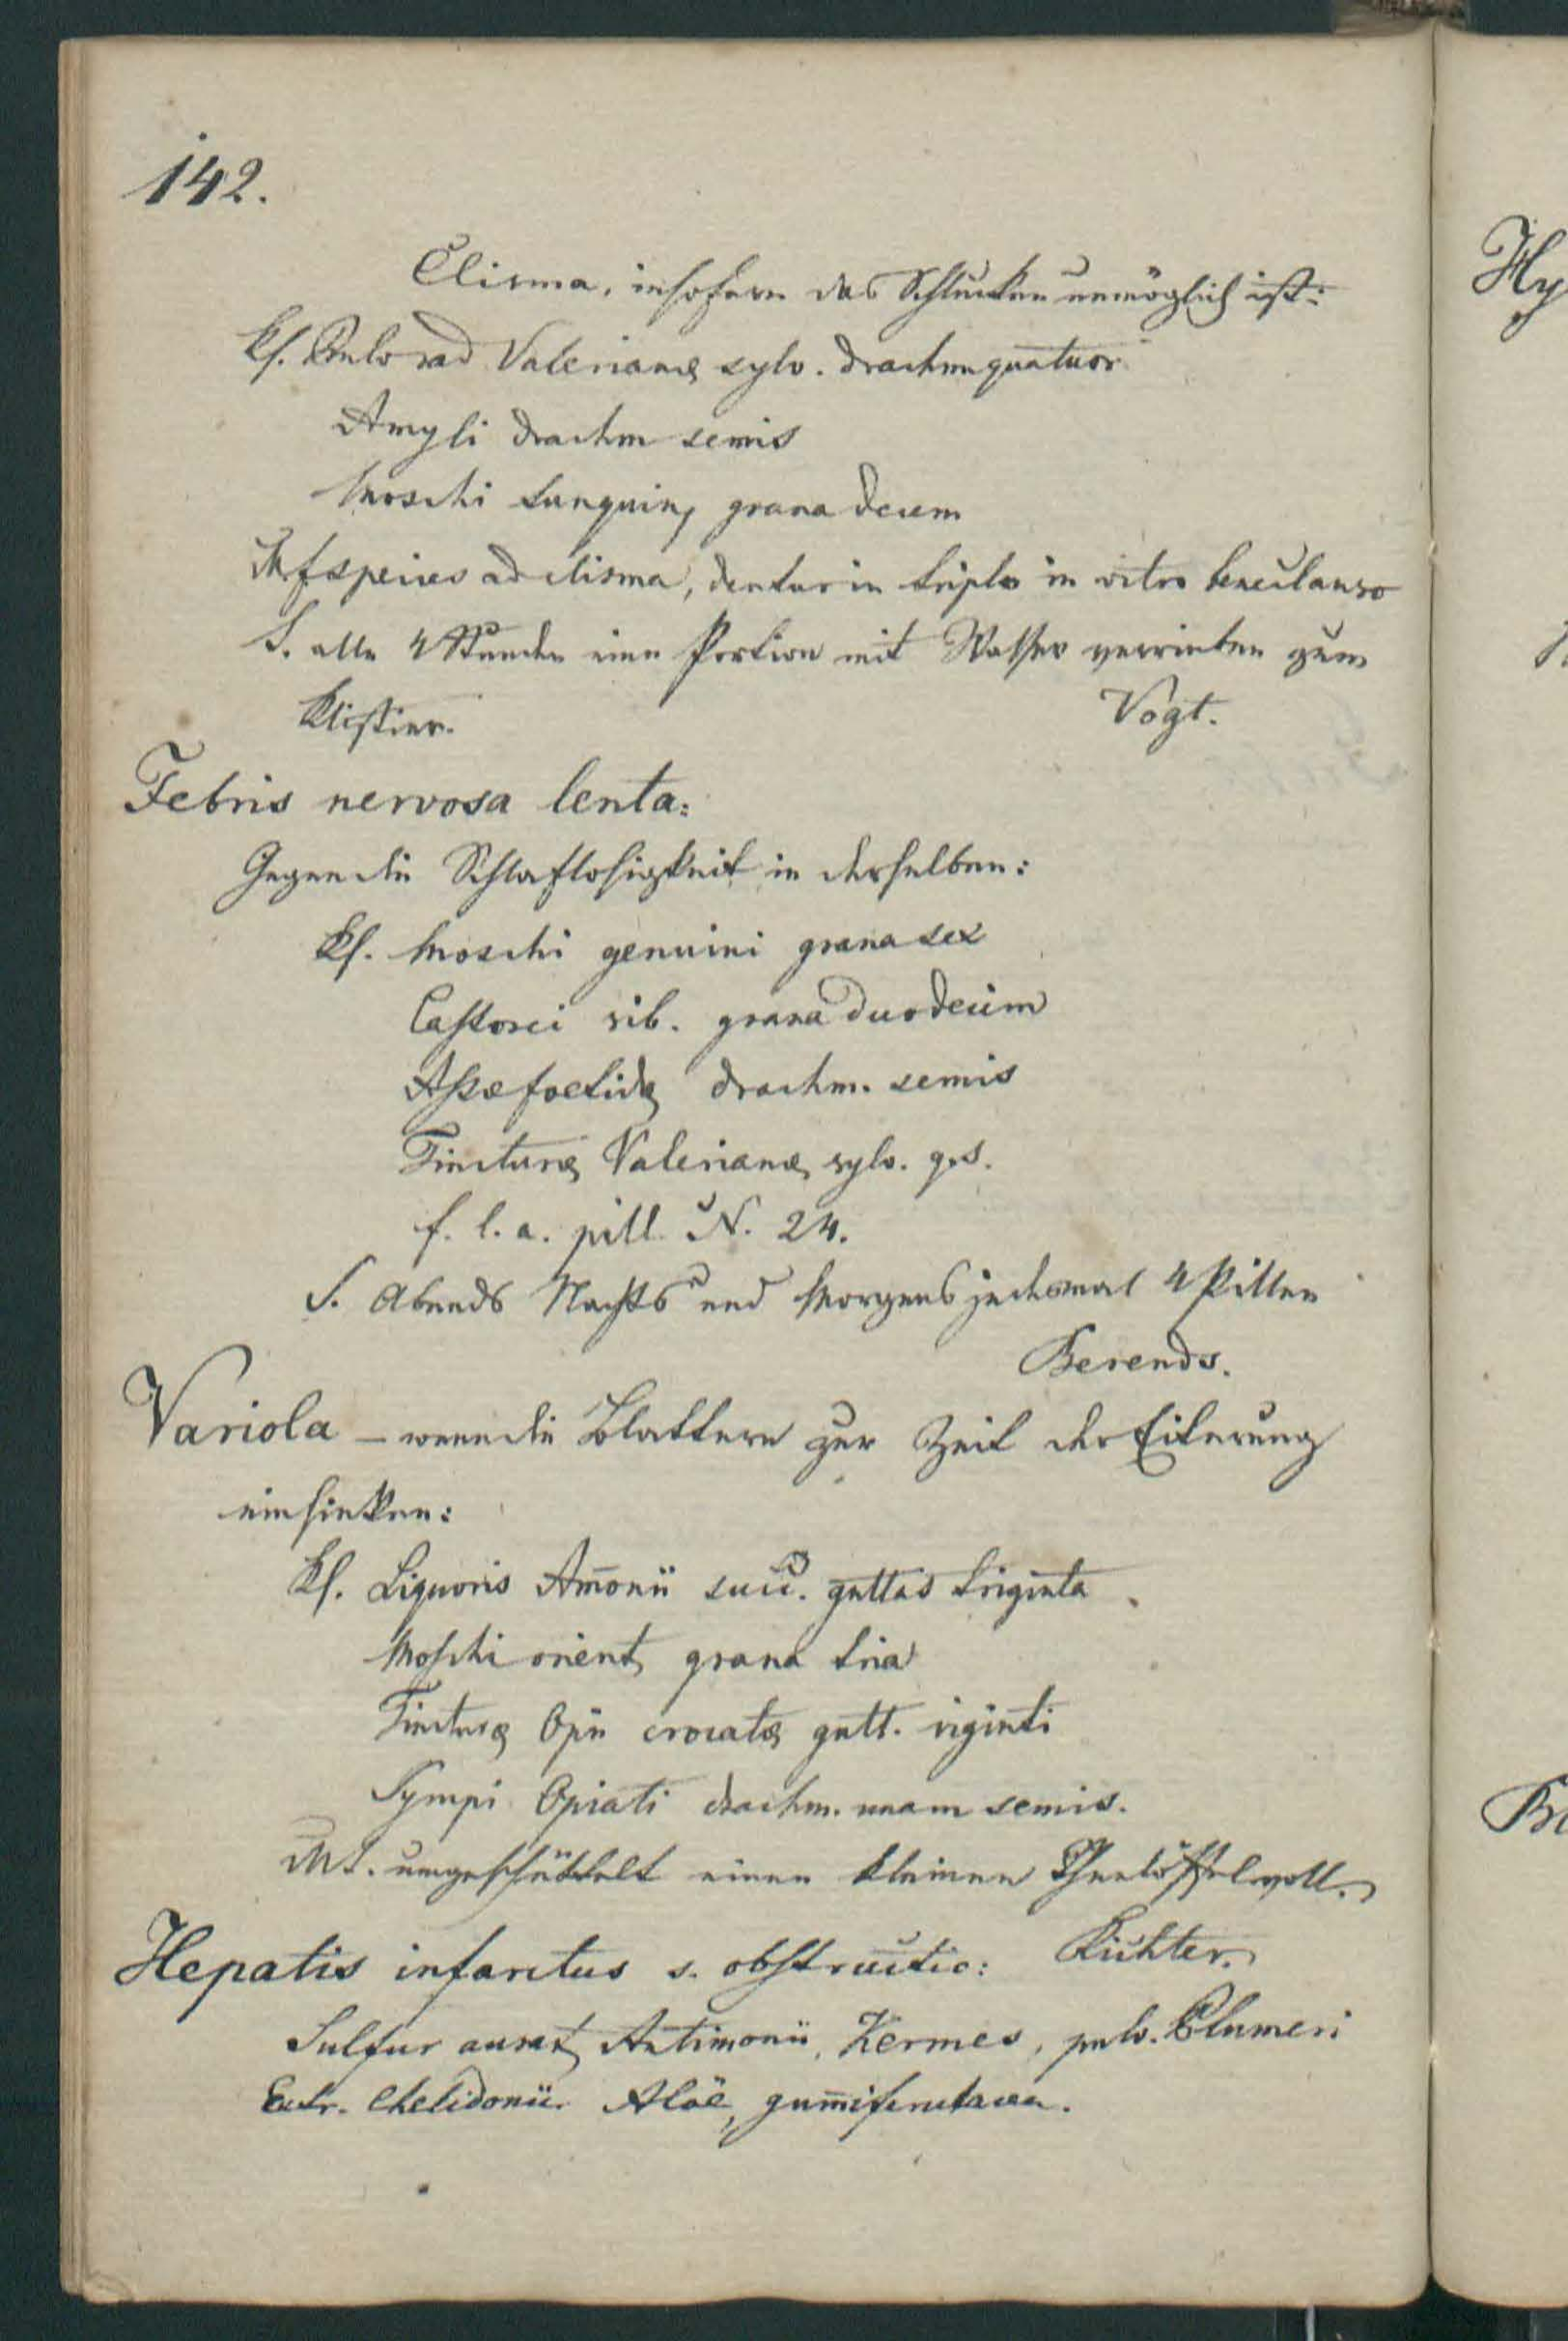 142.
Clisma, insofern das Schlucken unmöglich ist:
Rf. Pulv rad Valerianae sylv. drachm quatuor
Amyli drachm semis
Moschi tunquin, grana decem
M. f species ad clisma, dentur in triplo in vitro bene clauso
S. alle 4 Stunden eine Portion mit Wasser verrieben zum
Klistier. Vogt.
Febris nervosa lenta:
Gegen die Schlaflosigkeit in derselben:
Rf. Moschi genuini grana sex
Castorei sib. grana duodecim
Assae foetidae drachm. semis
Tincturae Valerianae sylv. q. s.
f. l. a. pill. N. 24.
S. Abends Nachts und Morgens jedesmal 4 Pillen
Berends.
Variola – wenn die Blattern zur Zeit der Eiterung
einsinken:
Rf. Liquoris Am̄onii succ. guttas triginta
Moschi orient, grana tria
Tincturae Opii crocatae gutt. viginti
Syrupi Opiati drachm. unam semis.
M S. umgeschüttelt einen kleinen Theelöffel voll.
Richter.
Hepatis infarctus s. obstructio:
Sulfur aurat, Antimonii, Kermes, pulv. Plumeri
Extr. Chelidonii. Aloë, gum̄iferulacea.
Hy